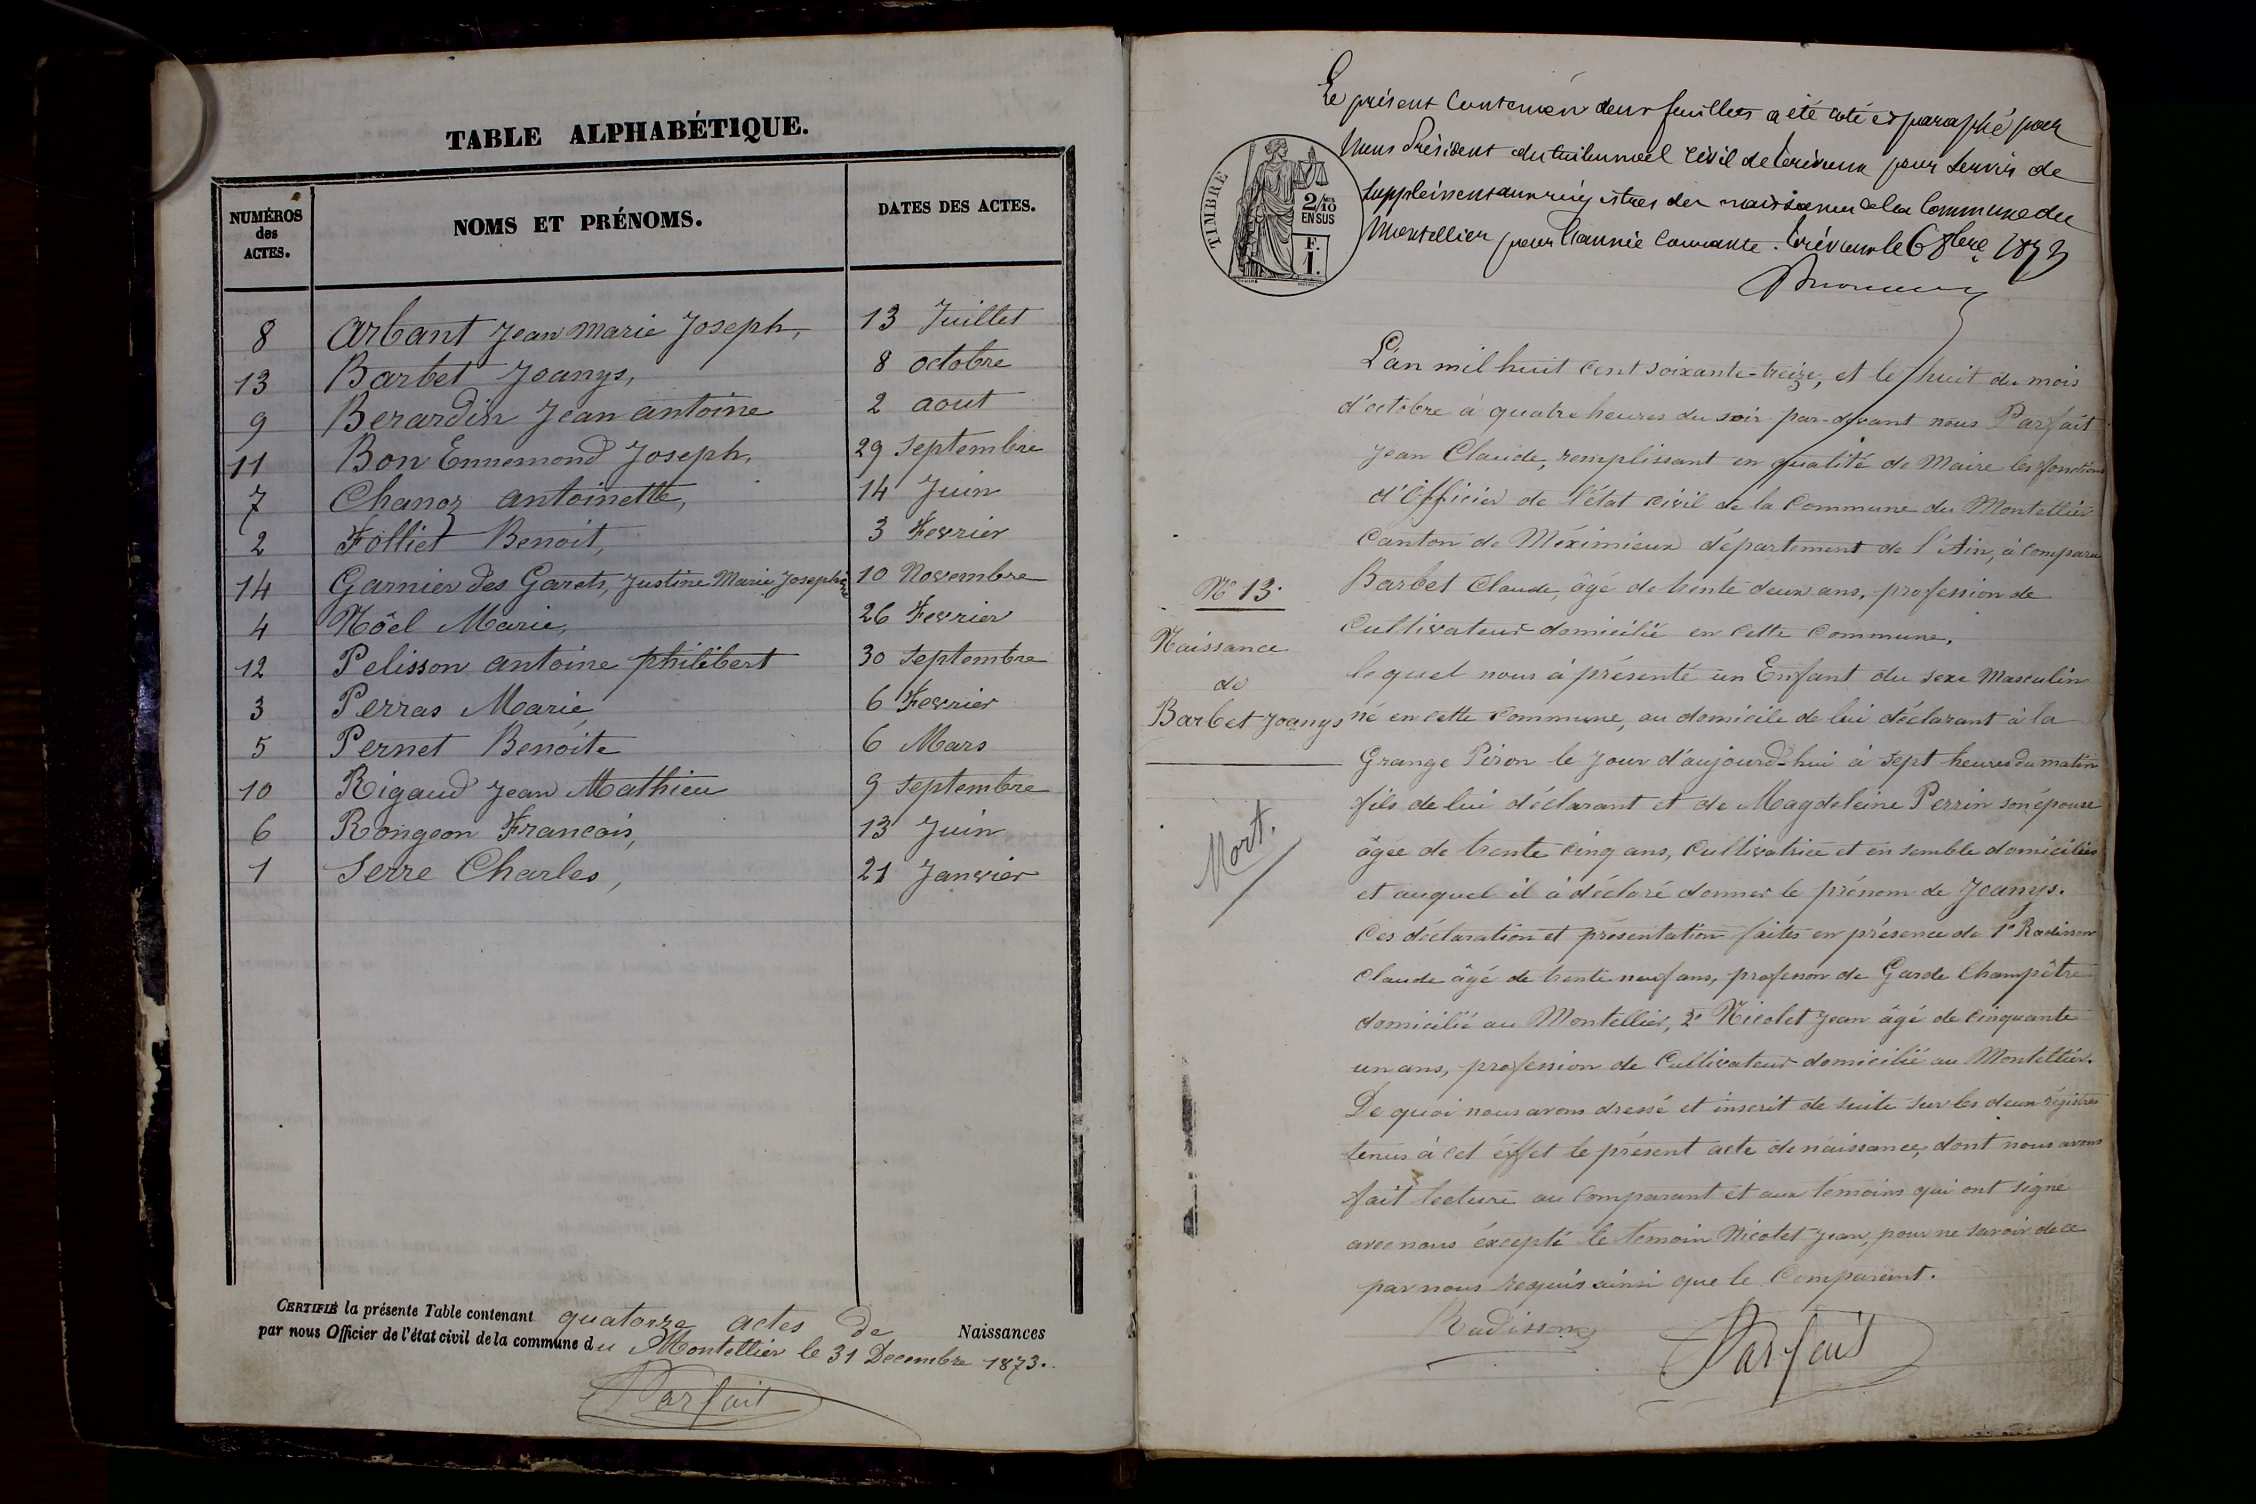 TABLE ALPHABÉTIQUE.
NUMÉROS des ACTES. NOMS ET PRÉNOMS. DATES DES ACTES.
8 Arbant Jean Marie Joseph, 13 Juillet
13 Barbet Joanys, 8 octobre
9 Berardin Jean antoine 2 aout
11 Bon Ennemond Joseph, 29 septembre
7 Chanoz antoinette, 14 Juin
2 Folliet Benoit, 3 Fevrier
14 Garnier des Garets, Justine Marie Josephine 10 Novembre
4 Nôel Marie, 26 Fevrier
12 Pelisson antoine philibert 30 septembre
3 Perras Marie 6 Fevrier
5 Pernet Benoite 6 Mars
10 Rigaud Jean Mathieu 9 septembre
6 Rongeon Francois, 13 Juin
1 Serre Charles, 21 Janvier
CERTIFIÉ la présente Table contenant quatorze actes de Naissances
par nous Officier de l'état civil de la commune du Montellier le 31 Decembre 1873.
Parfait
Le présent contenant deux feuillets a été coté et paraphé par
Nous Président du tribunal civil de Trévoux pour servir de
supplément aux registres des naissances de la Commune du
Montellier pour l'année courante. Trévoux le 6 8bre 1873
TIMBRE
2/10 EN SUS
F. 1.
L'an mil huit cent soixante-treize, et le huit du mois
d'octobre à quatre heures du soir par-devant nous Parfait
Jean Claude, remplissant en qualité de Maire les fonctions
d'Officier de l'état civil de la Commune du Montellier
Canton de Méximieux département de l'Ain, à comparu
Nº 13.
Naissance
de
Barbet Joanys
Mort.
Barbet Claude, âgé de trente deux ans, profession de
Cultivateur domicilié en cette commune,
lequel nous à présenté un Enfant du sexe Masculin
né en cette commune, au domicile de lui déclarant à la
Grange Piron le jour d'aujourd-hui à sept heures du matin
fils de lui déclarant et de Magdeleine Perrin son épouse
âgée de trente cinq ans, Cultivatrice et ensemble domiciliés
et auquel il à déclaré donner le prénom de Joanys.
Ces déclaration et présentation faites en présence de 1º Radisson
Claude âgé de trente neuf ans, profession de Garde Champêtre
domicilié au Montellier, 2º Nicolet Jean âgé de cinquante
un ans, profession de Cultivateur domicilié au Montellier.
De quoi nous avons dressé et inscrit de suite sur les deux régistres
tenus à cet éffet le présent acte de naissance, dont nous avons
fait lecture au comparant et aux témoins qui ont signé
avec nous éxcepté le témoin Nicolet Jean, pour ne savoir de ce
par nous requis ainsi que le Comparant.
Radisson
Parfait